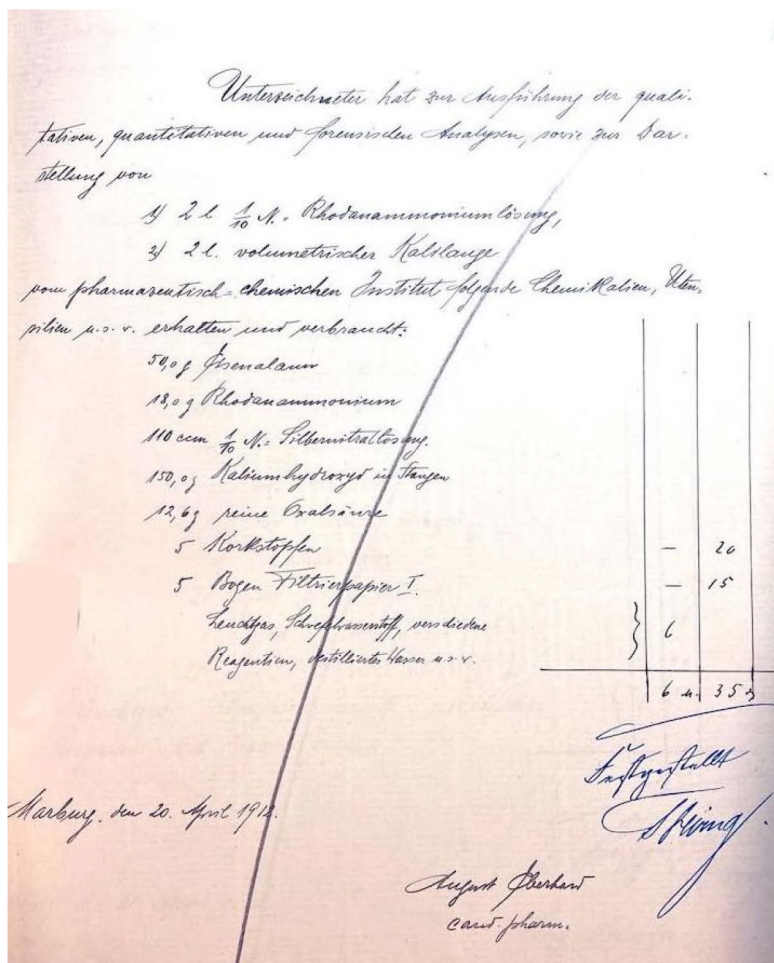 Unterzeichneter hat zur Ausführung der quali-
tativen, quantitativen und forensischen Analysen, sowie zur Dar-
stellung von
1) 2 l 1/10 N.- Rhodanammoniumlösung,
2) 2 l. volumetrischer Kalilauge
vom pharmazeutisch-chemischen Institut folgende Chemikalien, Uten-
silien u.s.w. erhalten und verbraucht:
50,0 g Eisenalaun
18,0 g Rhodanammonium
110 ccm 1/10 N.- Silbernitratlösung.
150,0 g Kaliumhydroxyd in Stangen
12,6 g reine Oxalsäure
5 Korkstopfen — 20
5 Bogen Filtrierpapier I. — 15
Leuchtgas, Schwefelwasserstoff, verschiedene
Reagentien, destilliertes Wasser u.s.w. } 6
6 M. 35
Festgestellt
Marburg, den 20. April 1912.
August Eberhard
cand. pharm.